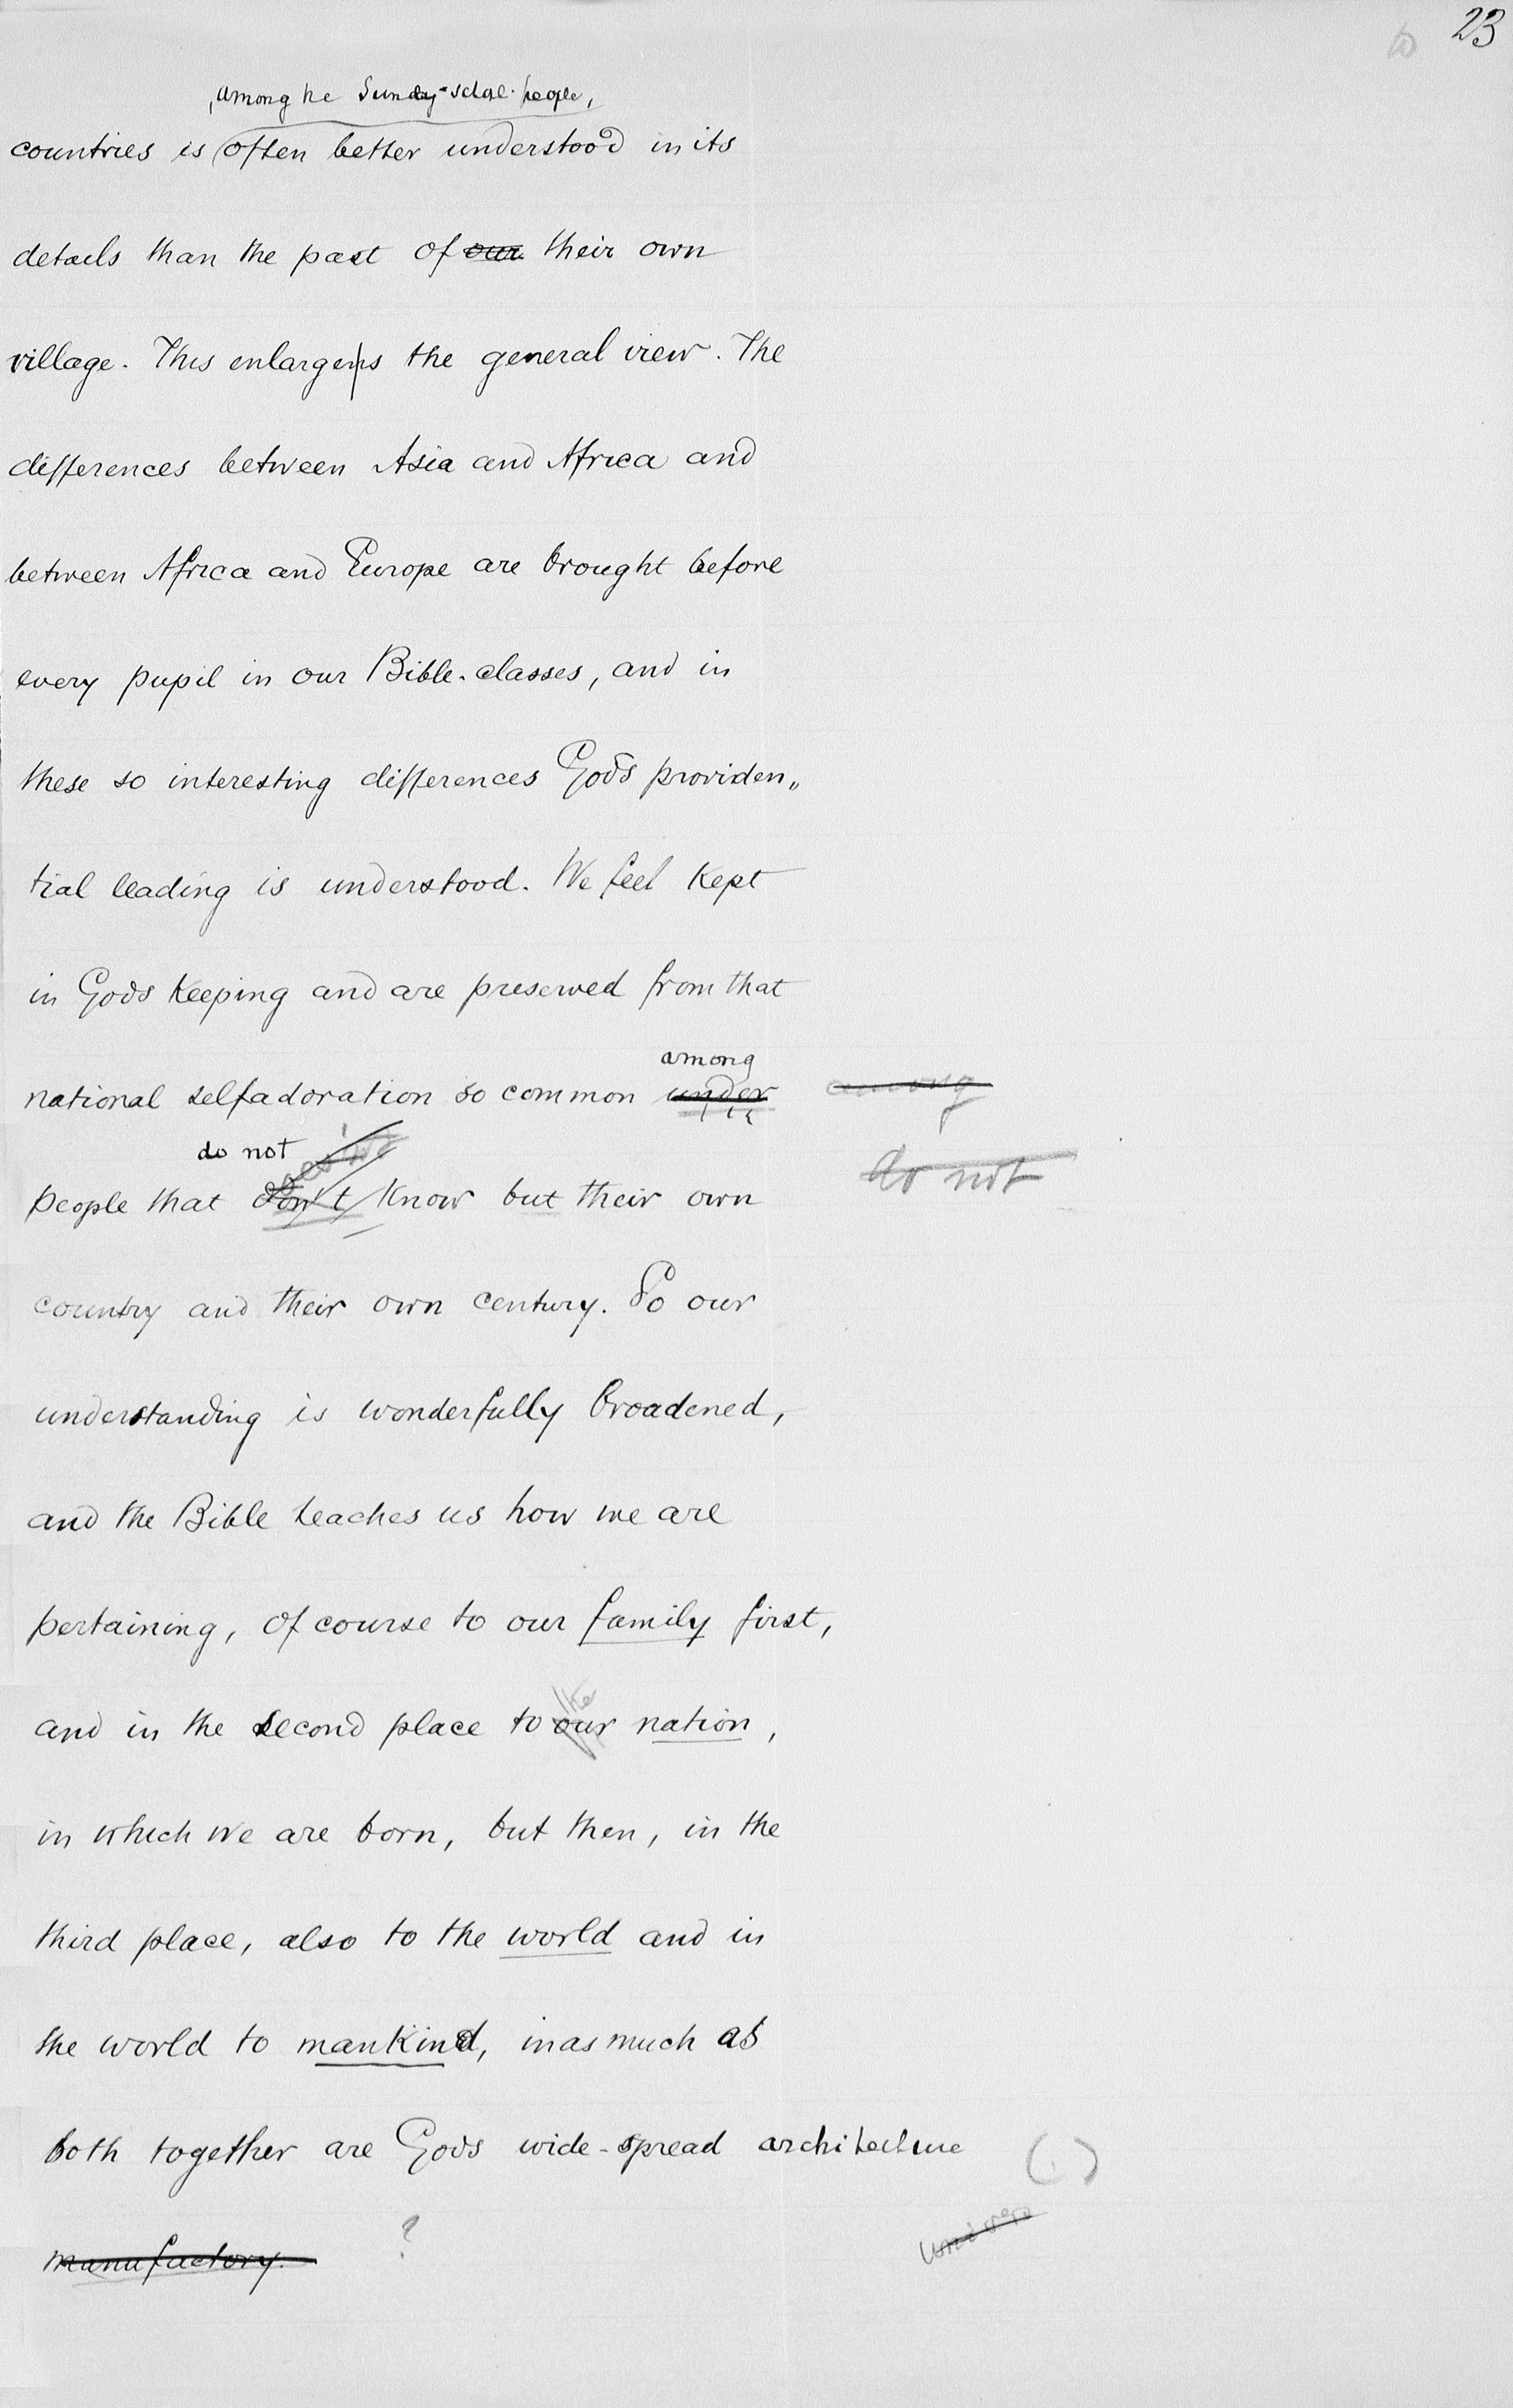 23
, among he Sunday-schol-people,
countries is often better understood in its
details than the past of our their own
village. This enlargens the general view. The
differences between Asia and Africa and
between Africa and Europe are brought before
every pupil in our Bible-classes, and in
these so interesting differences Gods providen„
tial leading is understood. We feel kept
in Gods keeping and are preserved from that
among
national selfadoration so common under among
do not
people that don't know but their own do not
country and their own century. So our
understanding is wonderfully broadened,
and the Bible teaches us how we are
pertaining, of course to our family first,
the
and in the second place to our nation,
in which we are born, but then, in the
third place, also to the world and in
the world to mankind, in as much as
both together are Gods wide-spread architecture (.)
manufactory. ?